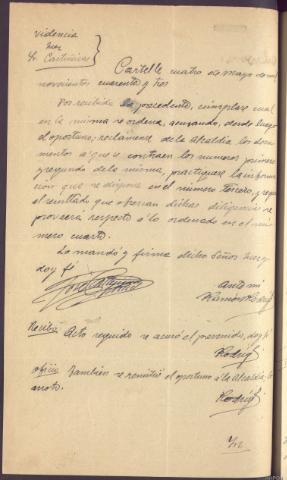 videncia
Juez
Sr. Castiñeiras
Cartelle cuatro de Mayo de mil
novecientos cuarenta y tres
Por recibida la precedente, cúmplase cual
en la misma se ordena, acusando, desde luego
el oportuno; reclámense de la Alcaldía los docu
mentos a que se contraen los números primero
y segundo de la misma, practíquese la informa
ción que se dispone en el número tercero, y según
el resultado que ofrezcan dichas diligencias se
proveerá respecto a lo ordenado en el nú
mero cuarto.
Lo mandó y firma dicho Señor Juez
doy fé
Ante mi
Ramón Rodrig
Recibo. Acto seguido se acusó el prevenido, doy fé
Rodrig
oficio. También se remitió el oportuno a la Alcaldía, lo
anoto.
Rodrig